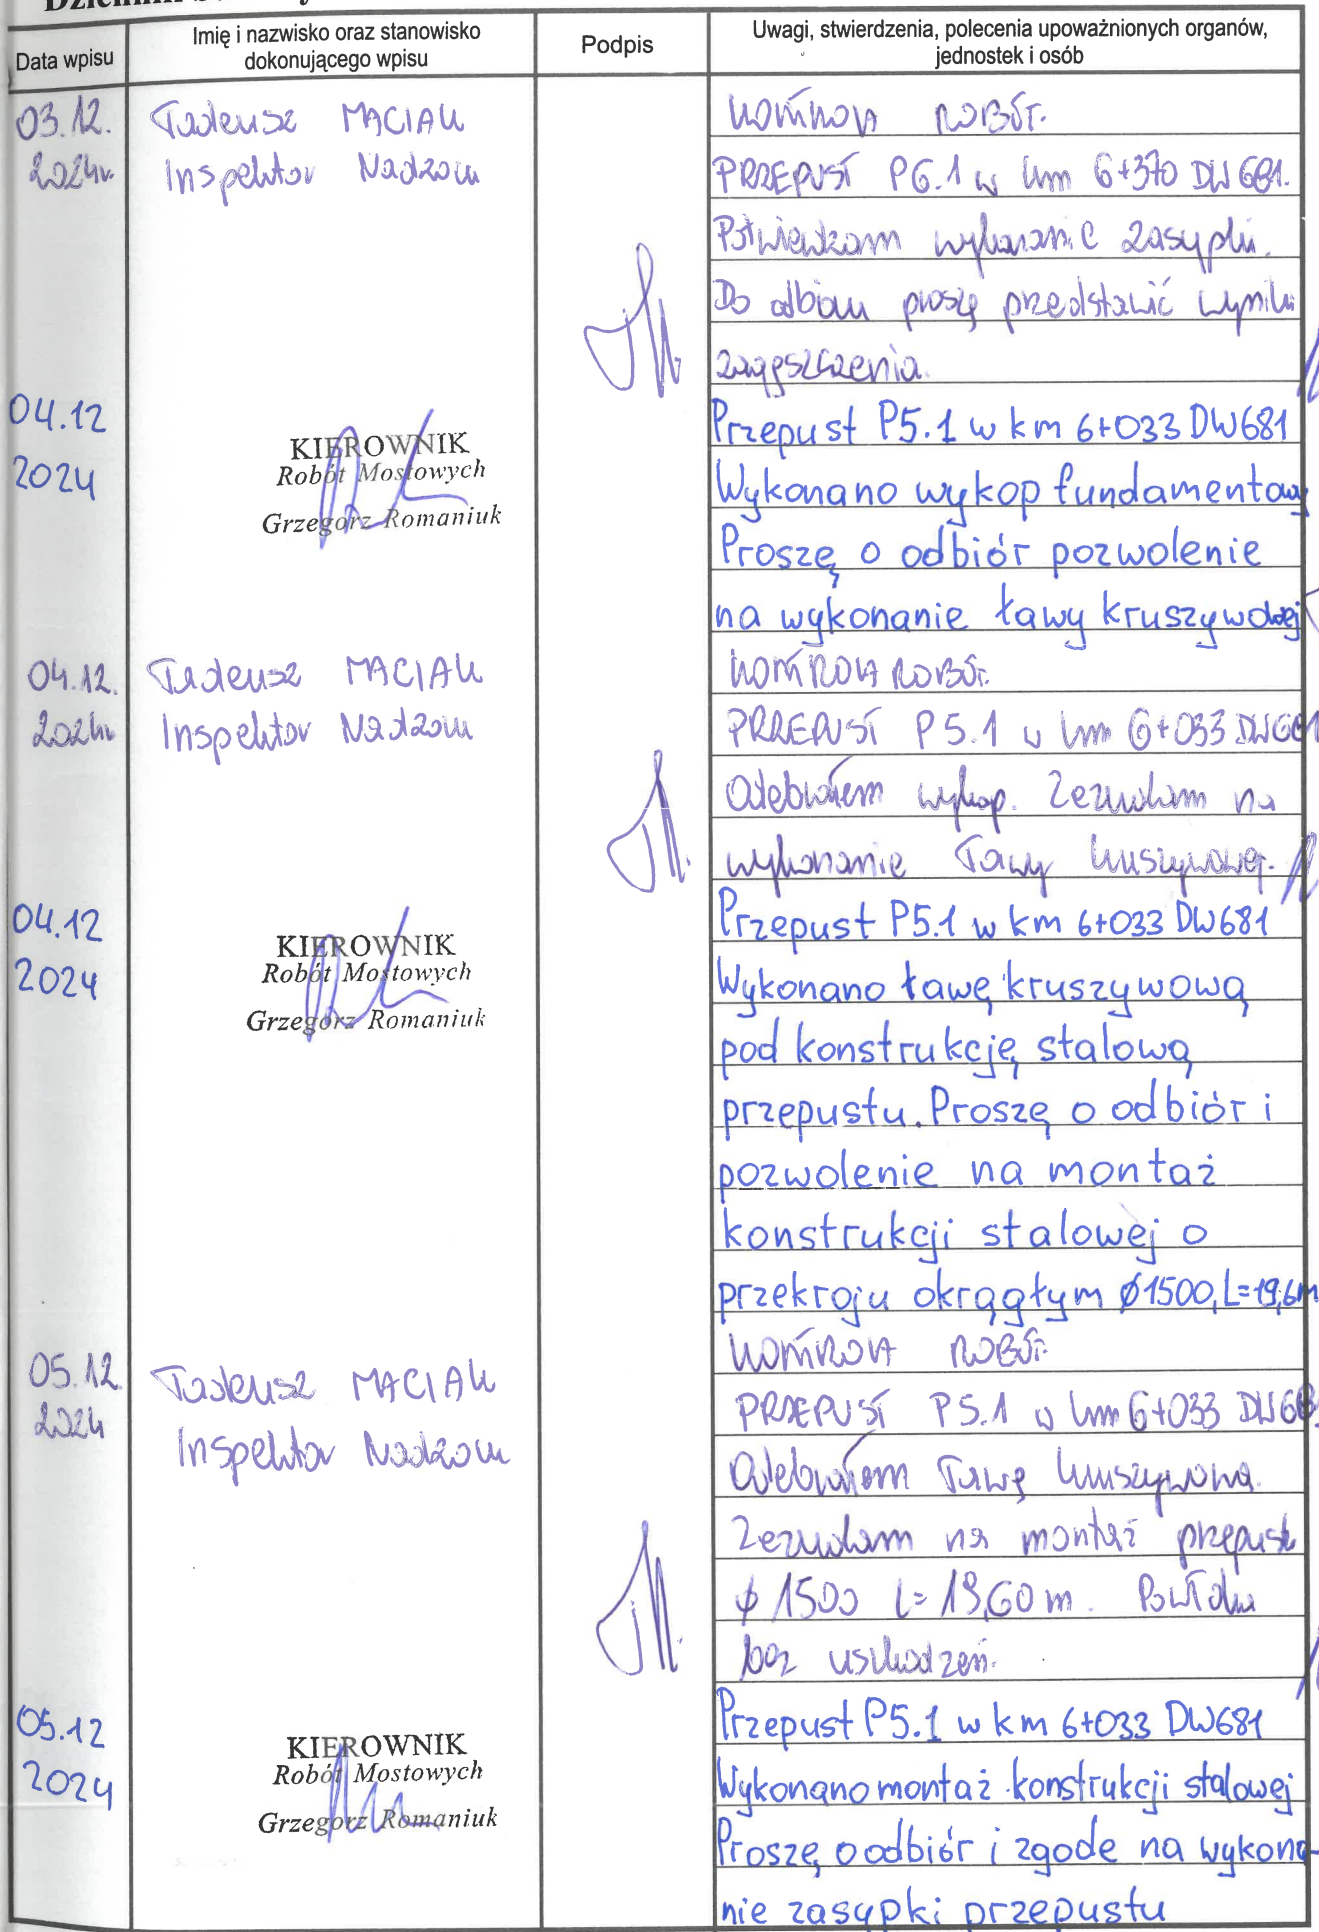 Data wpisu
Imię i nazwisko oraz stanowisko
dokonującego wpisu
Podpis
Uwagi, stwierdzenia, polecenia upoważnionych organów,
jednostek i osób
03.12.
2024r.
Tadeusz MACIAK
Inspektor Nadzoru
KONTROLA ROBÓT.
PRZEPUST P6.1 w km 6+370 DW 681.
Potwierdzam wykonanie zasypki.
Do odbioru proszę przedstawić wyniki
zagęszczenia.
04.12
2024
KIEROWNIK
Robót Mostowych
Grzegorz Romaniuk
Przepust P5.1 w km 6+033 DW681
Wykonano wykop fundamentowy
Proszę o odbiór pozwolenie
na wykonanie ławy kruszywowej
04.12.
2024r
Tadeusz MACIAK
Inspektor Nadzoru
KONTROLA ROBÓT.
PRZEPUST P5.1 w km 6+033 DW681
Odebrałem wykop. Zezwalam na
wykonanie ławy kruszywowej.
04.12
2024
KIEROWNIK
Robót Mostowych
Grzegorz Romaniuk
Przepust P5.1 w km 6+033 DW681
Wykonano ławę kruszywową
pod konstrukcję stalową
przepustu. Proszę o odbiór i
pozwolenie na montaż
konstrukcji stalowej o
przekroju okrągłym ø1500, L=19,6m
05.12.
2024
Tadeusz MACIAK
Inspektor Nadzoru
KONTROLA ROBÓT.
PRZEPUST P5.1 w km 6+033 DW681
Odebrałem ławę kruszywową.
Zezwalam na montaż przepustu
ø 1500 L=19,60 m. Powłoka
bez uszkodzeń.
05.12
2024
KIEROWNIK
Robót Mostowych
Grzegorz Romaniuk
Przepust P5.1 w km 6+033 DW681
Wykonano montaż konstrukcji stalowej
Proszę o odbiór i zgode na wykona-
nie zasypki przepustu